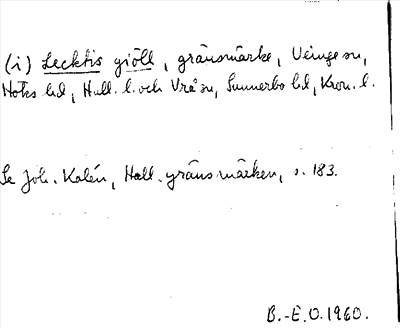 (i) Lecktis giöll, gränsmärke, Veinge sn,
Höks hd, Hall. l. och Vrå sn, Sunnerbo hd, Kron. l.
Se Joh. Kalén, Hall. gränsmärken, s. 183.
B.-E.O. 1960.